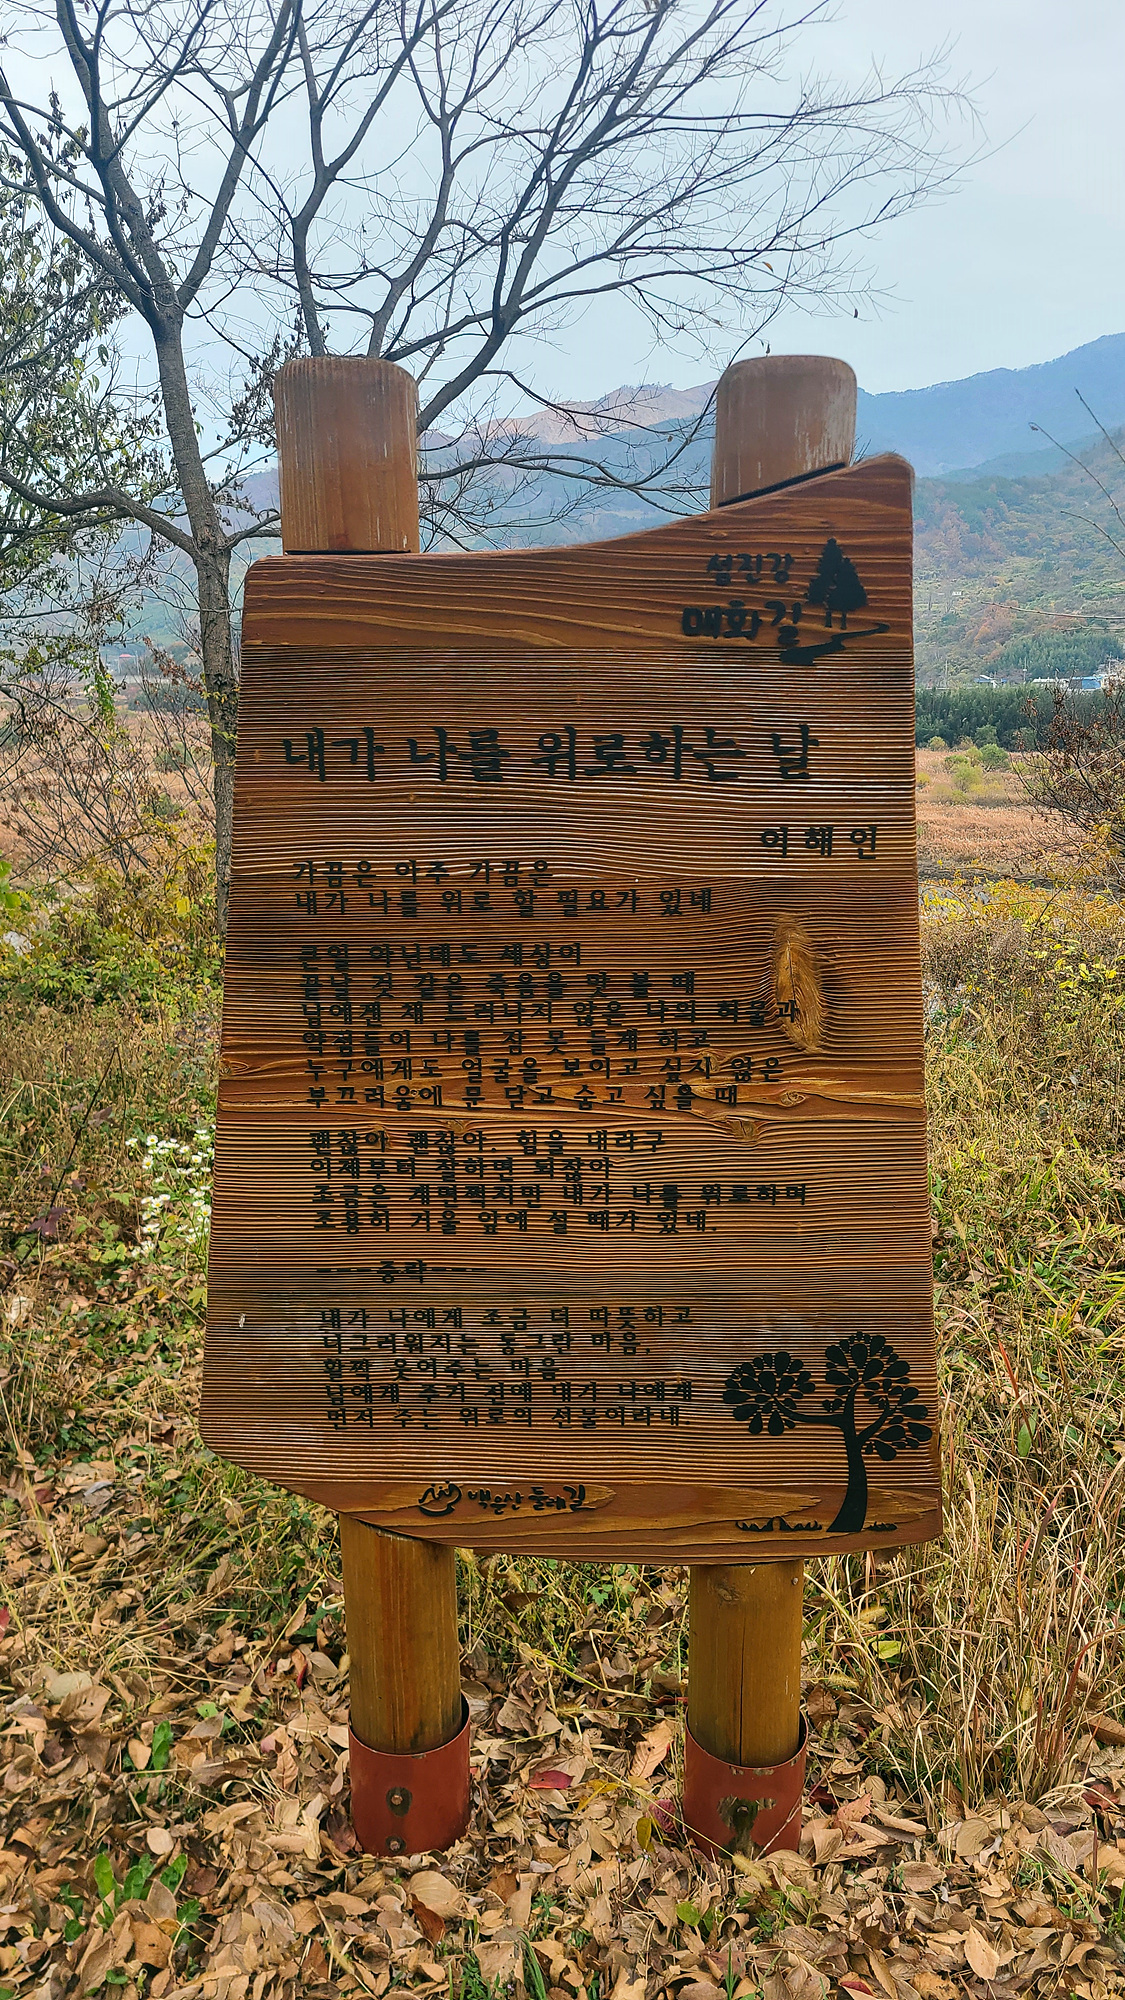 섬진강
매화길
내가 나를 위로하는 날
이해인
가끔은 아주 가끔은
내가 나를 위로 할 필요가 있네
큰일 아닌데도 세상이
끝날 것 같은 죽음을 맛 볼 때
남에겐 채 드러나지 않은 나의 허물과
약점들이 나를 잠 못 들게 하고
누구에게도 얼굴을 보이고 싶지 않은
부끄러움에 문 닫고 숨고 싶을 때
괜찮아 괜찮아. 힘을 내라구
이제부터 잘하면 되잖아
조금은 계면쩍지만 내가 나를 위로하며
조용히 거울 앞에 설 때가 있네.
---중략---
내가 나에게 조금 더 따뜻하고
너그러워지는 동그란 마음,
활짝 웃어주는 마음
남에게 주기 전에 내가 나에게
먼저 주는 위로의 선물이라네.
백운산 둘레길